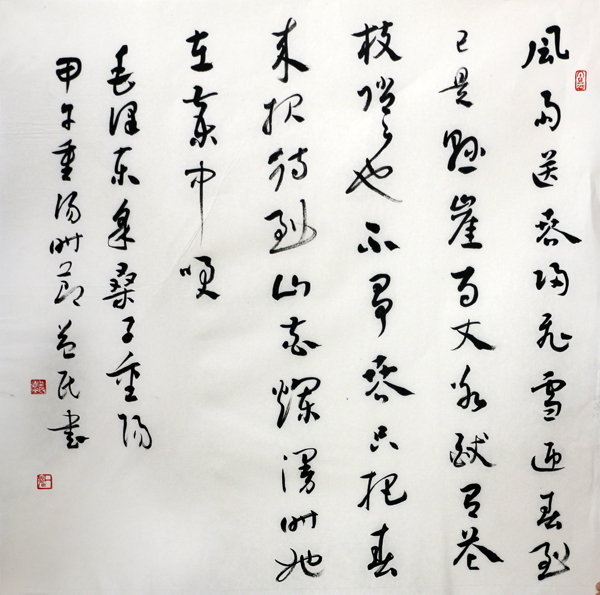 風雨送春归飞雪迎春到
已是懸崖百丈冰猶有花
枝俏々也不爭春只把春
来报待到山花爛漫時她
在叢中笑
毛澤东采桑子重陽
甲午重陽時節益民書